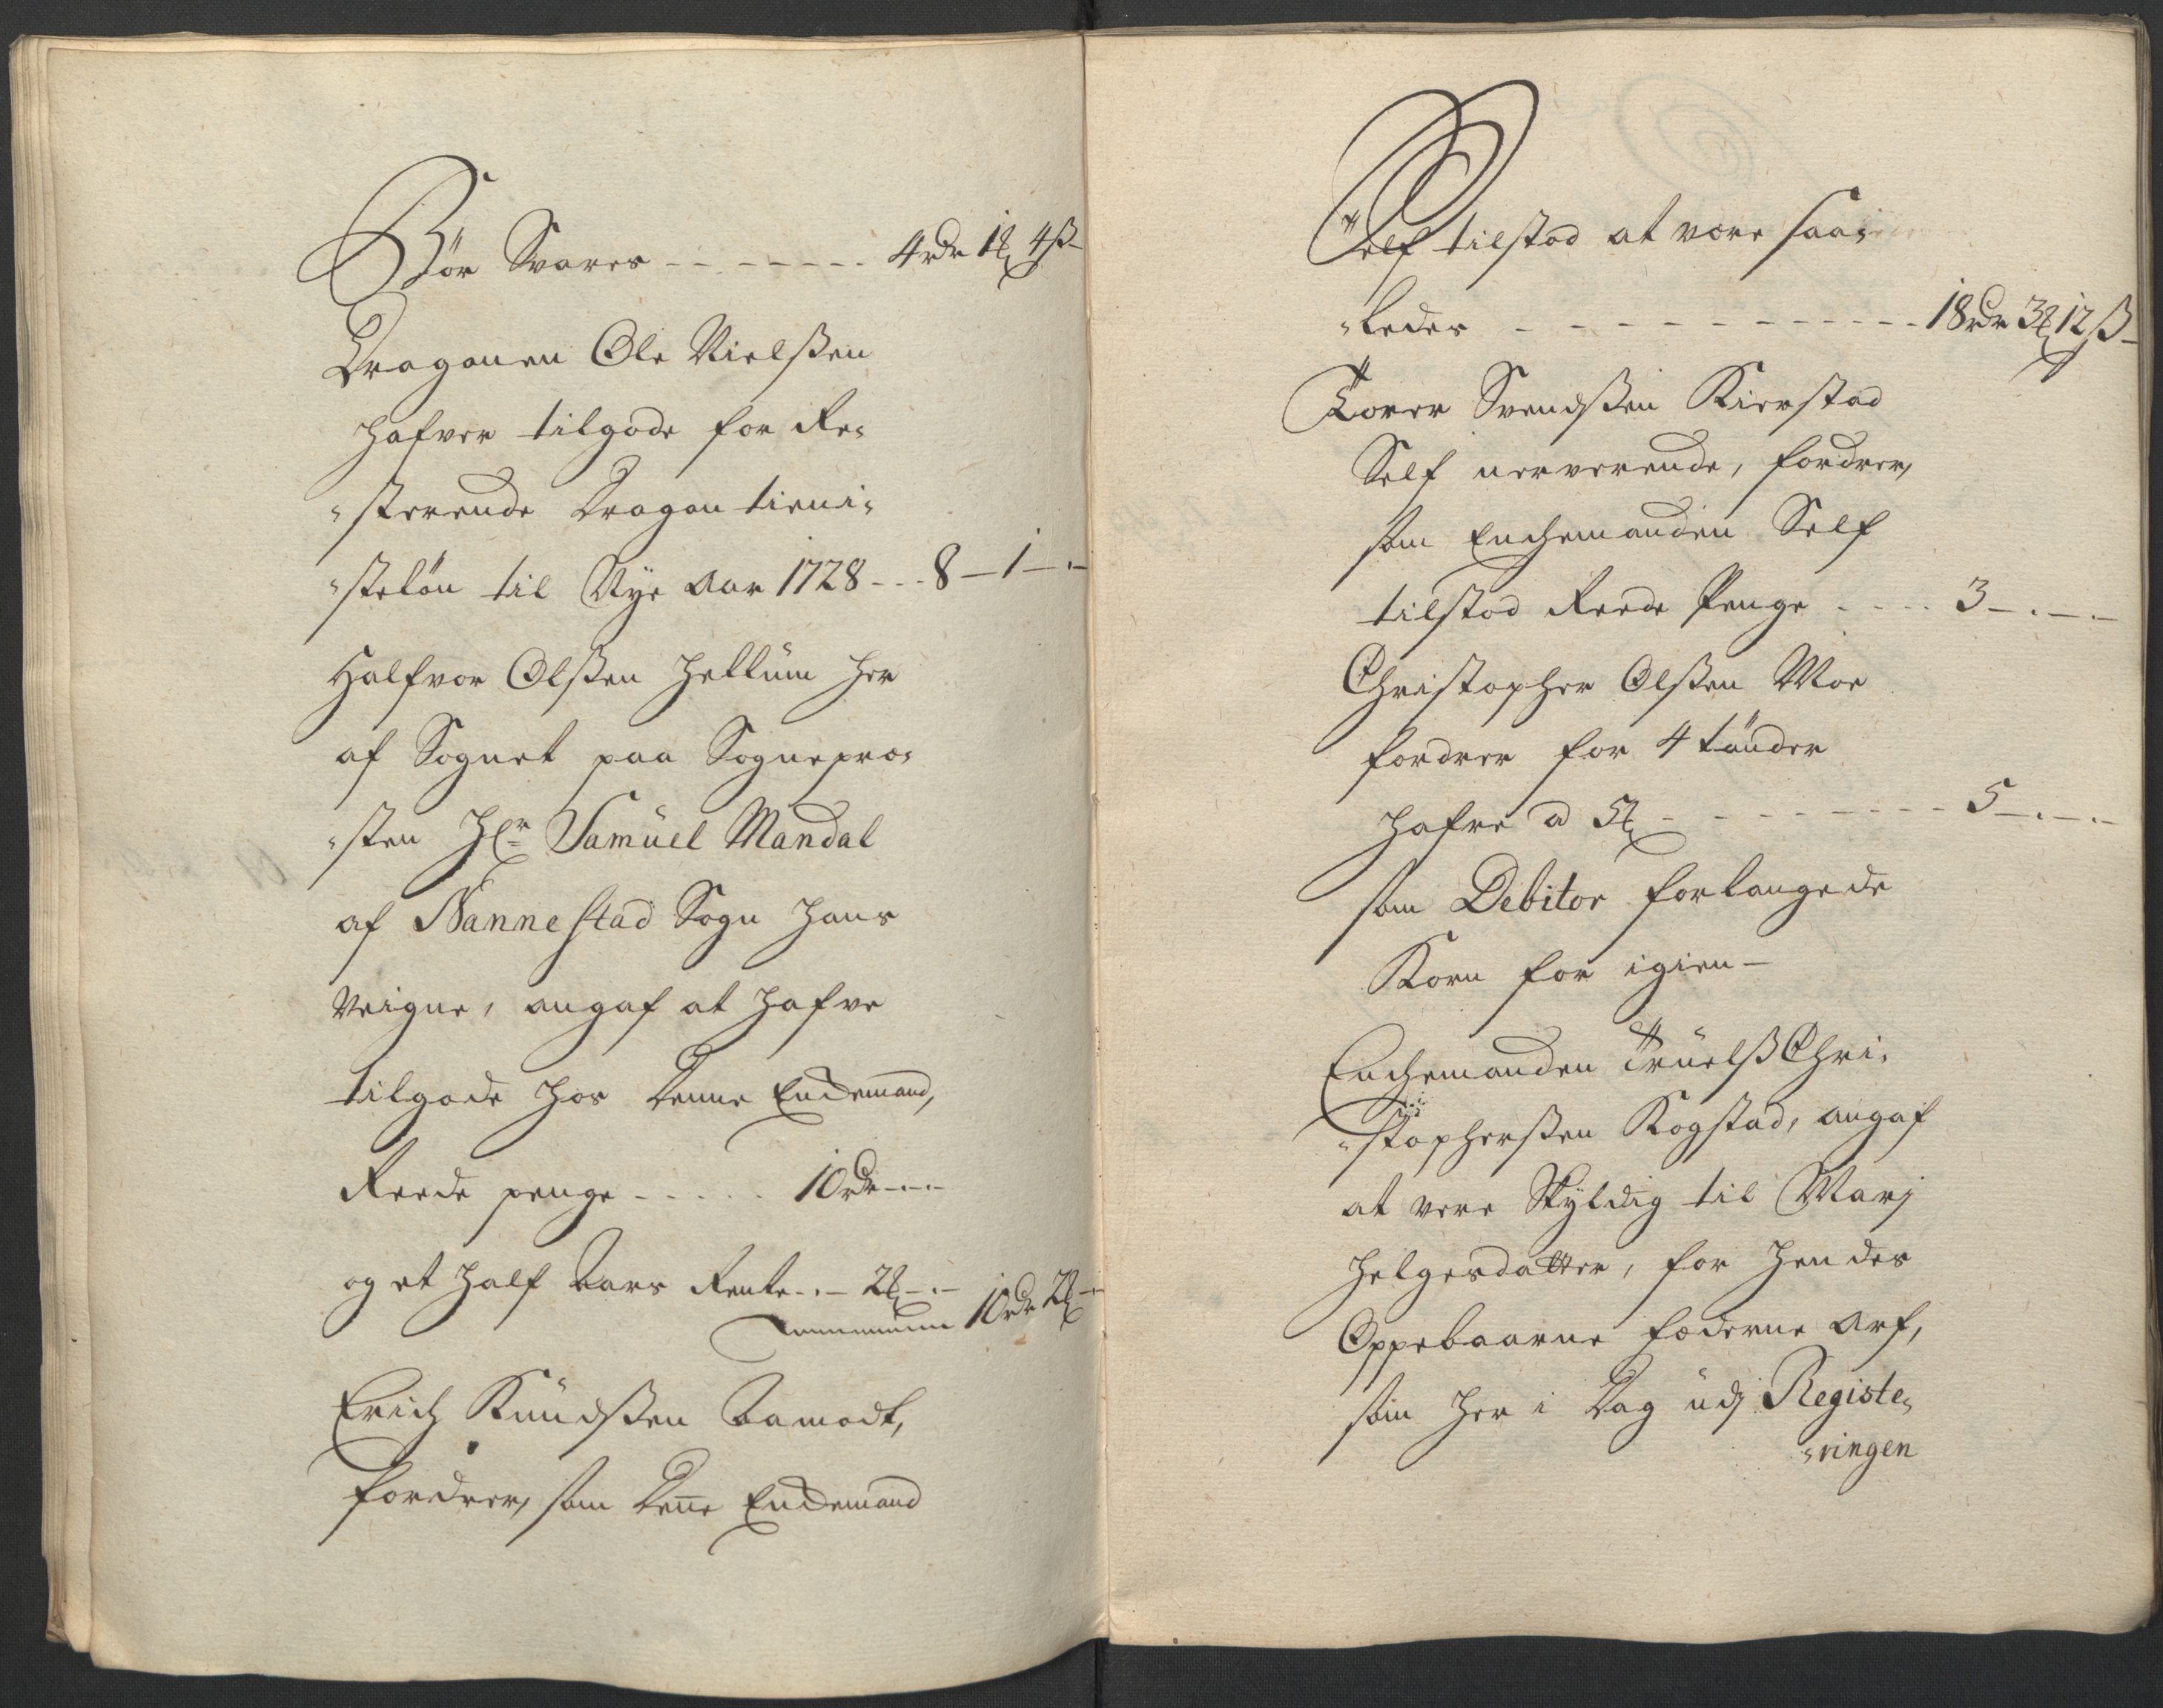 Bör Svares - - - - - - - 4rdr 1℔ 4ß -
Dragonen Ole Nielßen
hafver tilgode for Re„
„sterende Dragon tieni„
„steløn til Nye Aar 1728 - - - 8 - 1 - . -
Halfvor Olßen Hellum her
af Sognet paa Sognepræ„
„sten Hr. Samuel Mandal
af Nannestad Sogn hans
Veigne, angaf at hafve
tilgode hos denne Enckemand,
Reede penge - - - - - 10rdr - . -
og et half Aars Rente - . - 2℔ - . -
10rdr 2℔ -
Erich Knudßen Aamodt,
fordrer, som denne Enckemand
Self tilstod at være saa„
„ledes - - - - - - - - - - 18rdr 3℔ 12ß -
Torer Svendßen Kierstad
Self nerverende, fordrer,
som Enchemanden Self
tilstod Reede Penge - - - - 3 - . - . -
Christopher Olßen Moe
fordrer for 4 tønder
Hafre a 5℔ - - - - - - - 5 - . - . -
som Debitor forlangede
Korn for igien -
Enchemanden Truelß Chri„
„stopherßen Kogstad, angaf
at vere Skyldig til Marj
Helgesdatter, for hendes
Oppebaarne fæderne Arf,
som her i Dag udj Registe„
„ringen